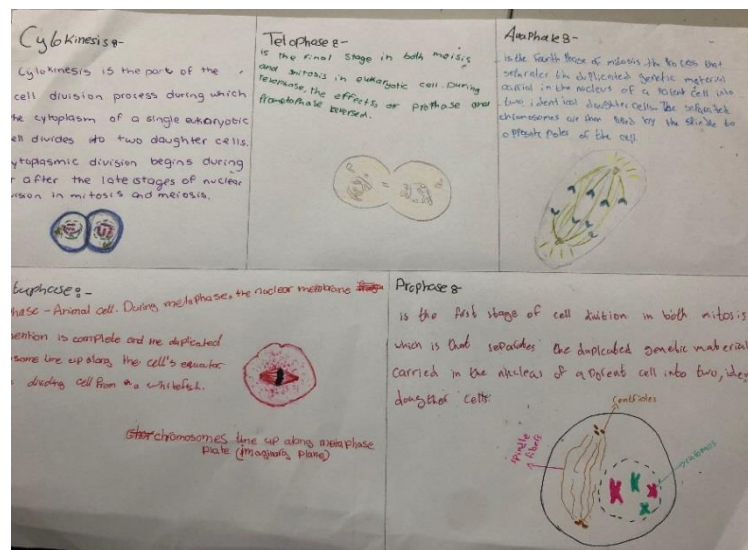 Cytokinesis:-
Cytokinesis is the part of the
cell division process during which
the cytoplasm of a single eukaryotic
ell divides into two daughter cells.
ytoplasmic division begins during
r after the late stages of nuclear
vision in mitosis and meiosis.
Telophase:-
is the final stage in both meisis
and mitosis in eukaryotic cell. During
telophase, the effects of prothase and
Prometophase reversed.
Anaphase:-
is the fourth phase of mitosis the process that
separates the duplicated genetic material
carried in the nucleus of a parent cell into
two identical daughter cells. The
chromosomes are then by the spindle to
opposite poles of the cell
taphase:-
phase - Animal cell. During metaphase, the nuclear membrane
is complete and the duplicated
some line up along the cell's equator
dividing cell from a whitefish.
chromosomes line up along metaphase
plate (imaginary plane)
Prophase:-
is the first stage of cell divition in both mitosis
which is that separates the duplicated genetic material
carried in the nucleus of a parent cell into two, iden
doughter cells
centrioles
spindle
fibers